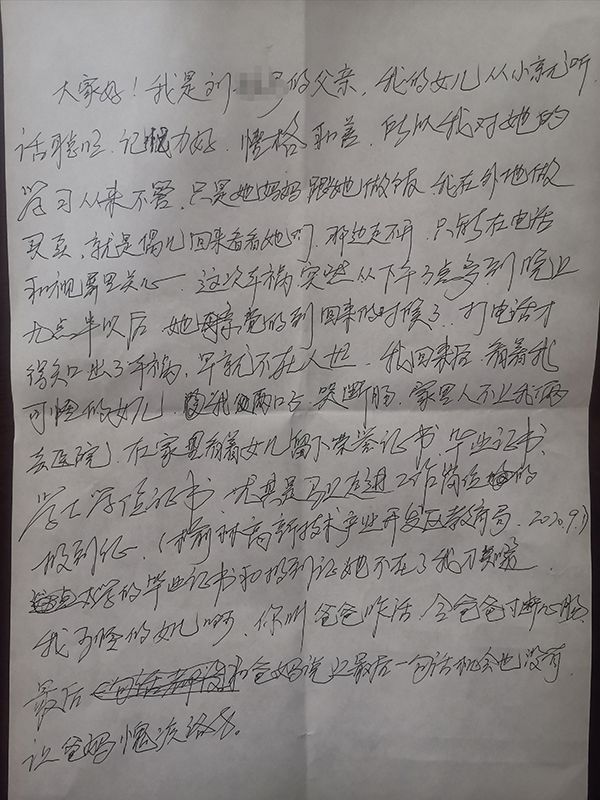 大家好！我是刘 的父亲，我的女儿从小就听
话聪明，记忆力好，性格和善，所以我对她的
学习从来不管，只是她妈妈跟她做饭，我在外地做
买卖，就是偶儿回来看看她们，那边走不开，只能在电话
和视频里关心。这次车祸突然从下午3点多到晚上
九点半以后，她母亲觉的到回来的时候了，打电话才
得知出了车祸，早就不在人世，我回来后看着我
可怜的女儿， 我 两口子哭断肠，家里人不让我俩
去医院，在家里看着女儿留下荣誉证书，毕业证书，
学士学位证书，尤其是马上走进工作岗位 的
报到证，（榆林高新技术产业开发区教育局，2020.9.1）
大学的毕业证书和报到证她不在了我才
我可怜的女儿啊，你叫爸爸咋活，令爸爸寸断心肠，
最后 和爸妈说上最后一句话机会也没有，
让爸妈愧疚终身。